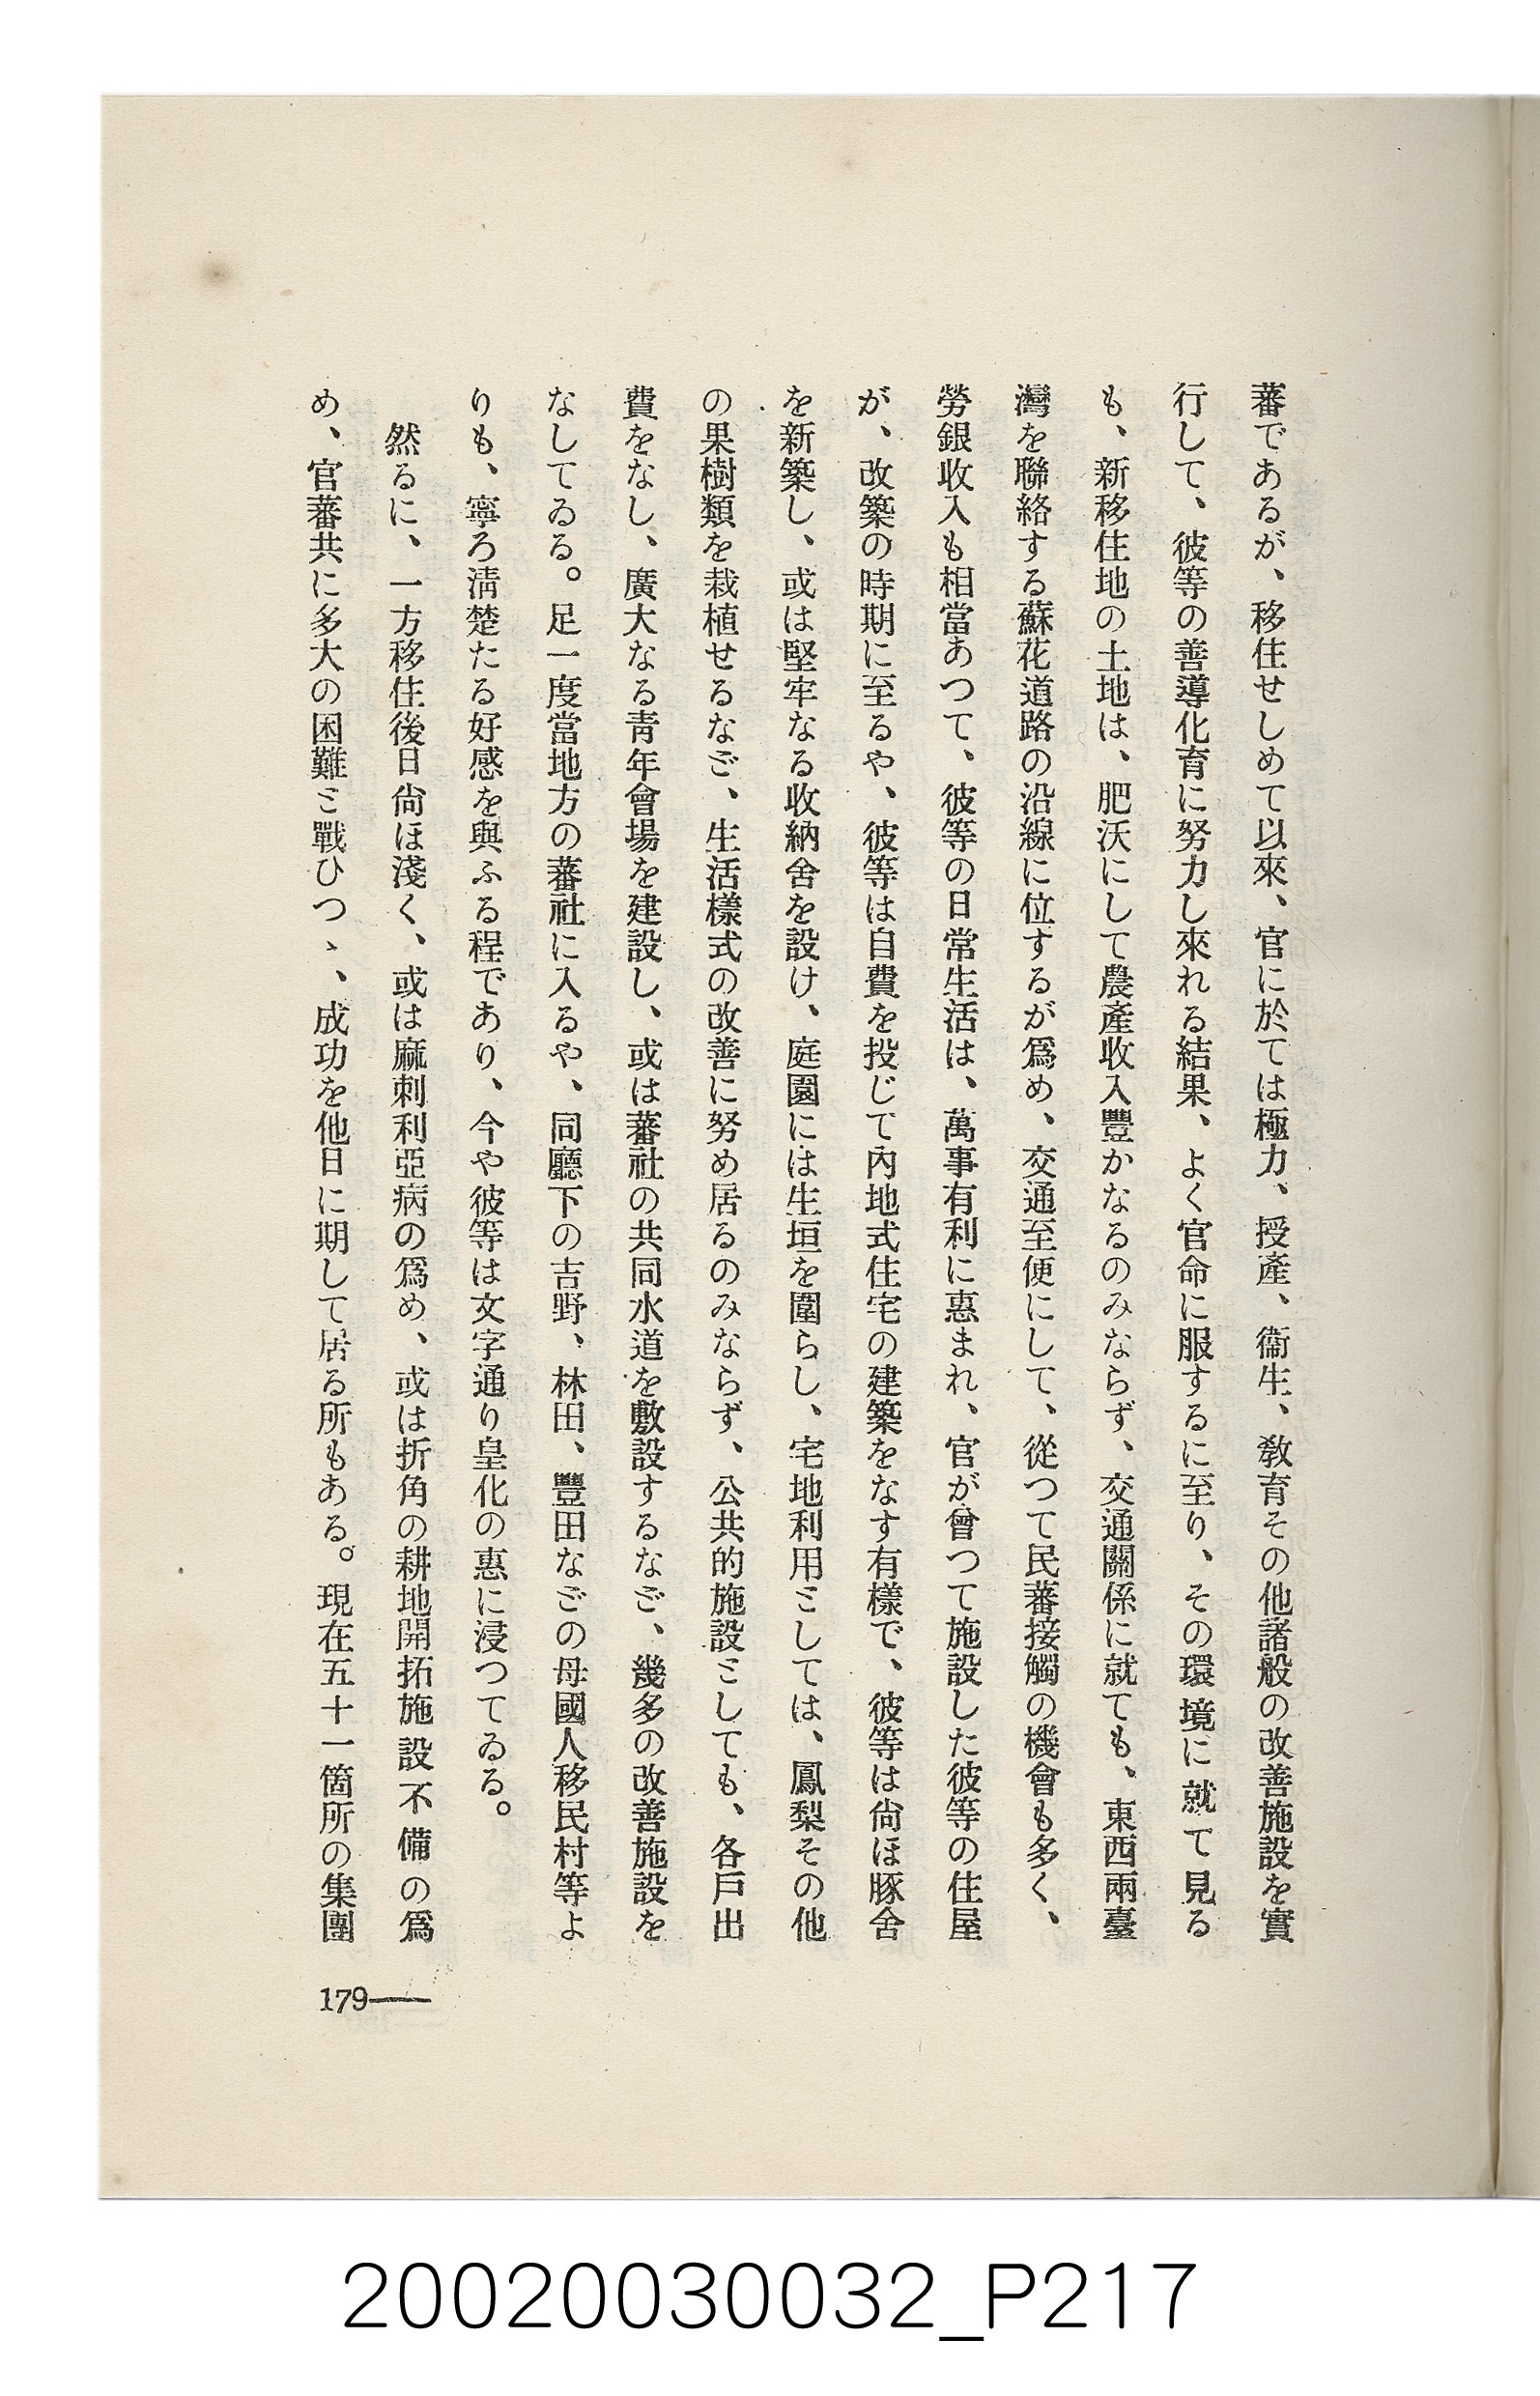 蕃であるが、移住せしめて以來、官に於ては極力、授產、衞生、敎育その他諸般の改善施設を實
行して、彼等の善導化育に努力し來れる結果、よく官命に服するに至り、その環境に就て見る
も、新移住地の土地は、肥沃にして農產收入豐かなるのみならず、交通關係に就ても、東西兩臺
灣を聯絡する蘇花道路の沿線に位するが爲め、交通至便にして、從つて民蕃接觸の機會も多く、
勞銀收入も相當あつて、彼等の日常生活は、萬事有利に惠まれ、官が曾つて施設した彼等の住屋
が、改築の時期に至るや、彼等は自費を投じて內地式住宅の建築をなす有樣で、彼等は尙ほ豚舍
を新築し、或は堅牢なる收納舍を設け、庭園には生垣を圍らし、宅地利用としては、鳳梨その他
の果樹類を栽植せるなど、生活樣式の改善に努め居るのみならず、公共的施設としても、各戶出
費をなし、廣大なる靑年會場を建設し、或は蕃社の共同水道を敷設するなど、幾多の改善施設を
なしてゐる。足一度當地方の蕃社に入るや、同廳下の吉野、林田、豐田などの母國人移民村等よ
りも、寧ろ淸楚たる好感を與ふる程であり、今や彼等は文字通り皇化の惠に浸つてゐる。
然るに、一方移住後日尙ほ淺く、或は麻刺利亞病の爲め、或は折角の耕地開拓施設不備の爲
め、官蕃共に多大の困難と戰ひつゝ、成功を他日に期して居る所もある。現在五十一箇所の集團
179―
20020030032_P217